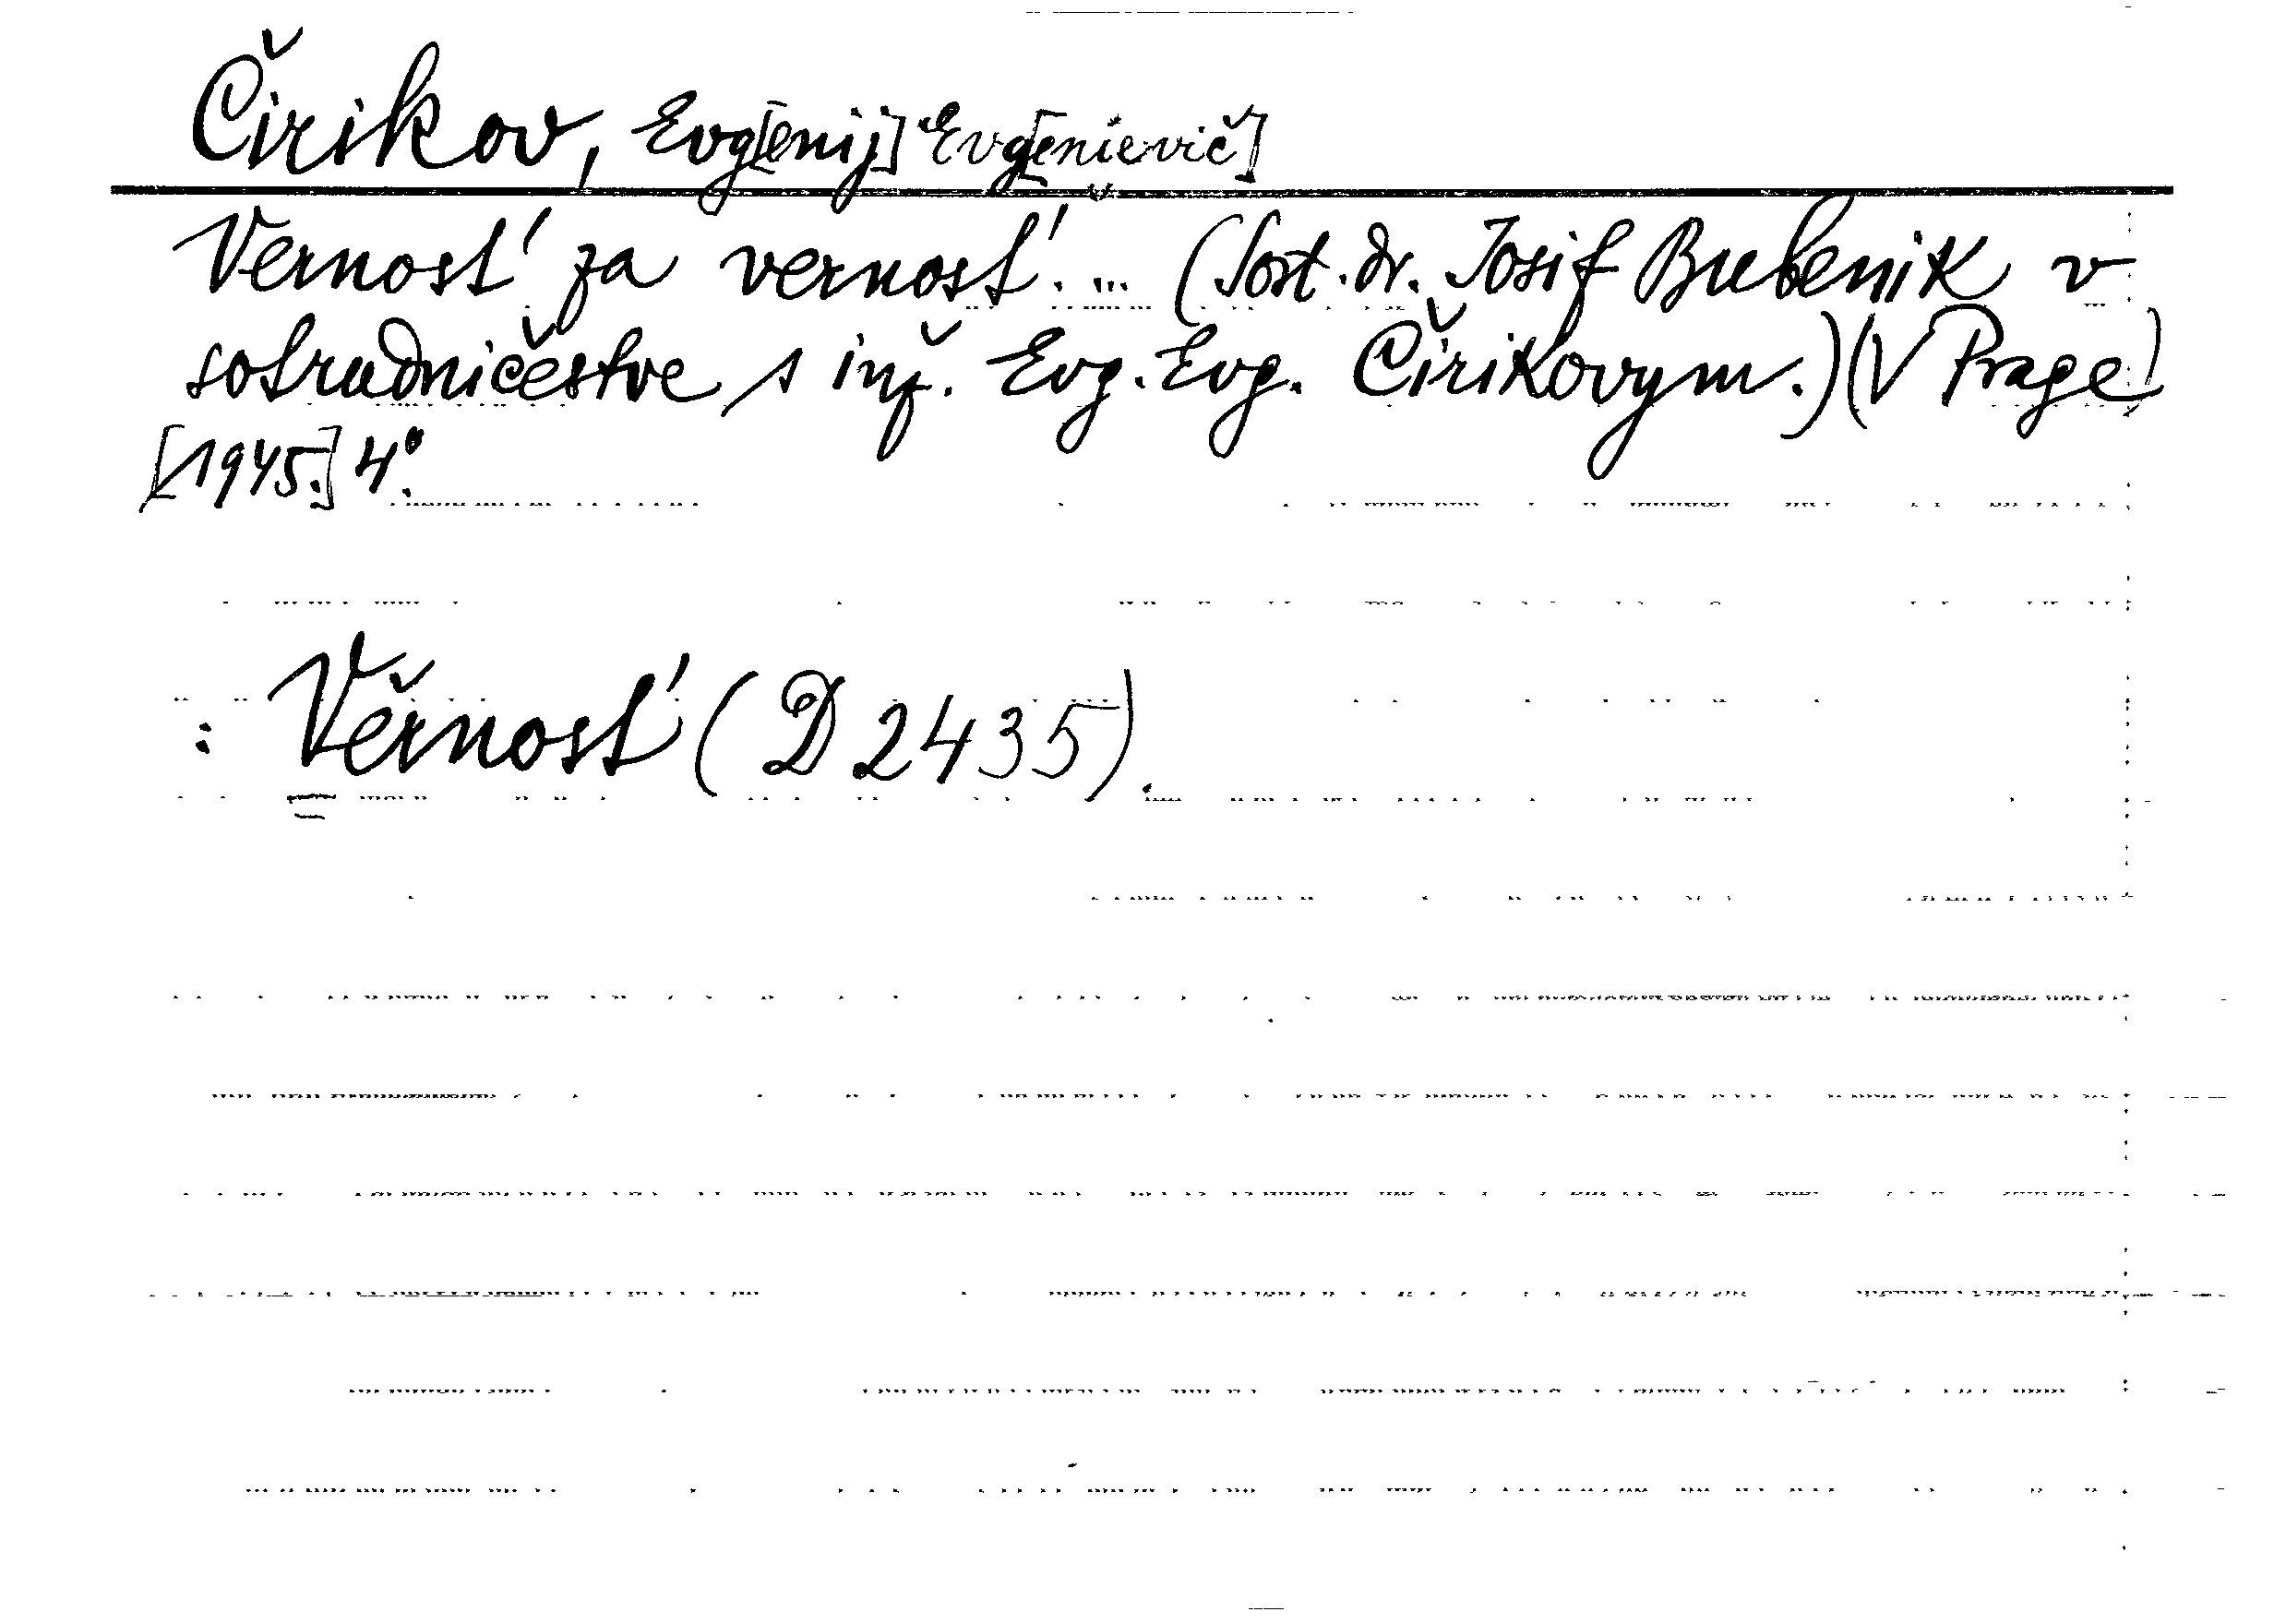 Čirikov, Evg[enij] Evg[enievič]
Vernosť za vernosť. ... (Sost. dr. Iosif Bubenik v
sotrudničestve s inž. Evg. Evg. Čirikovym.) (V Prage)
[1945.] 4°.
: Věrnosť (D 2435).